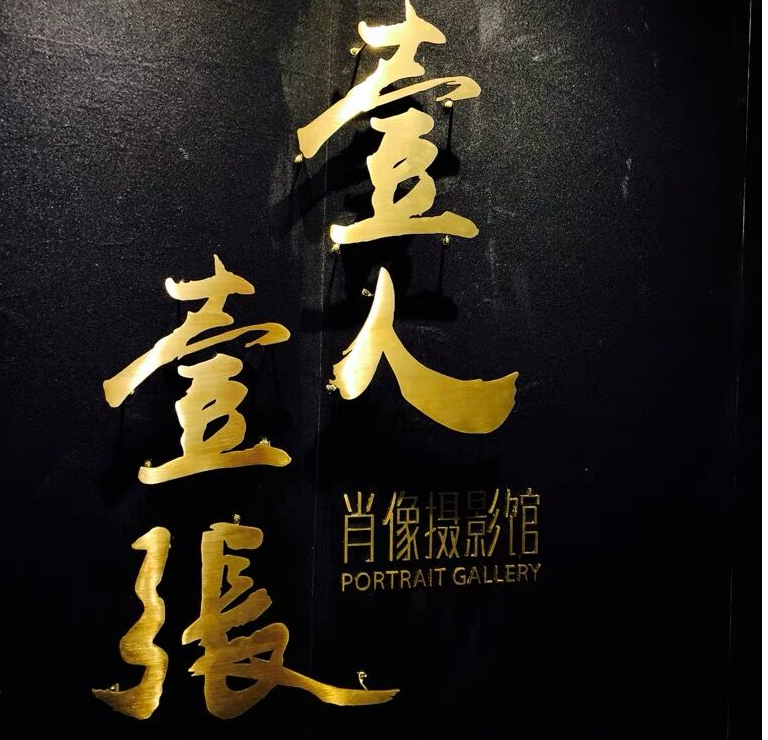 壹人
壹張
肖像摄影馆
PORTRAIT GALLERY